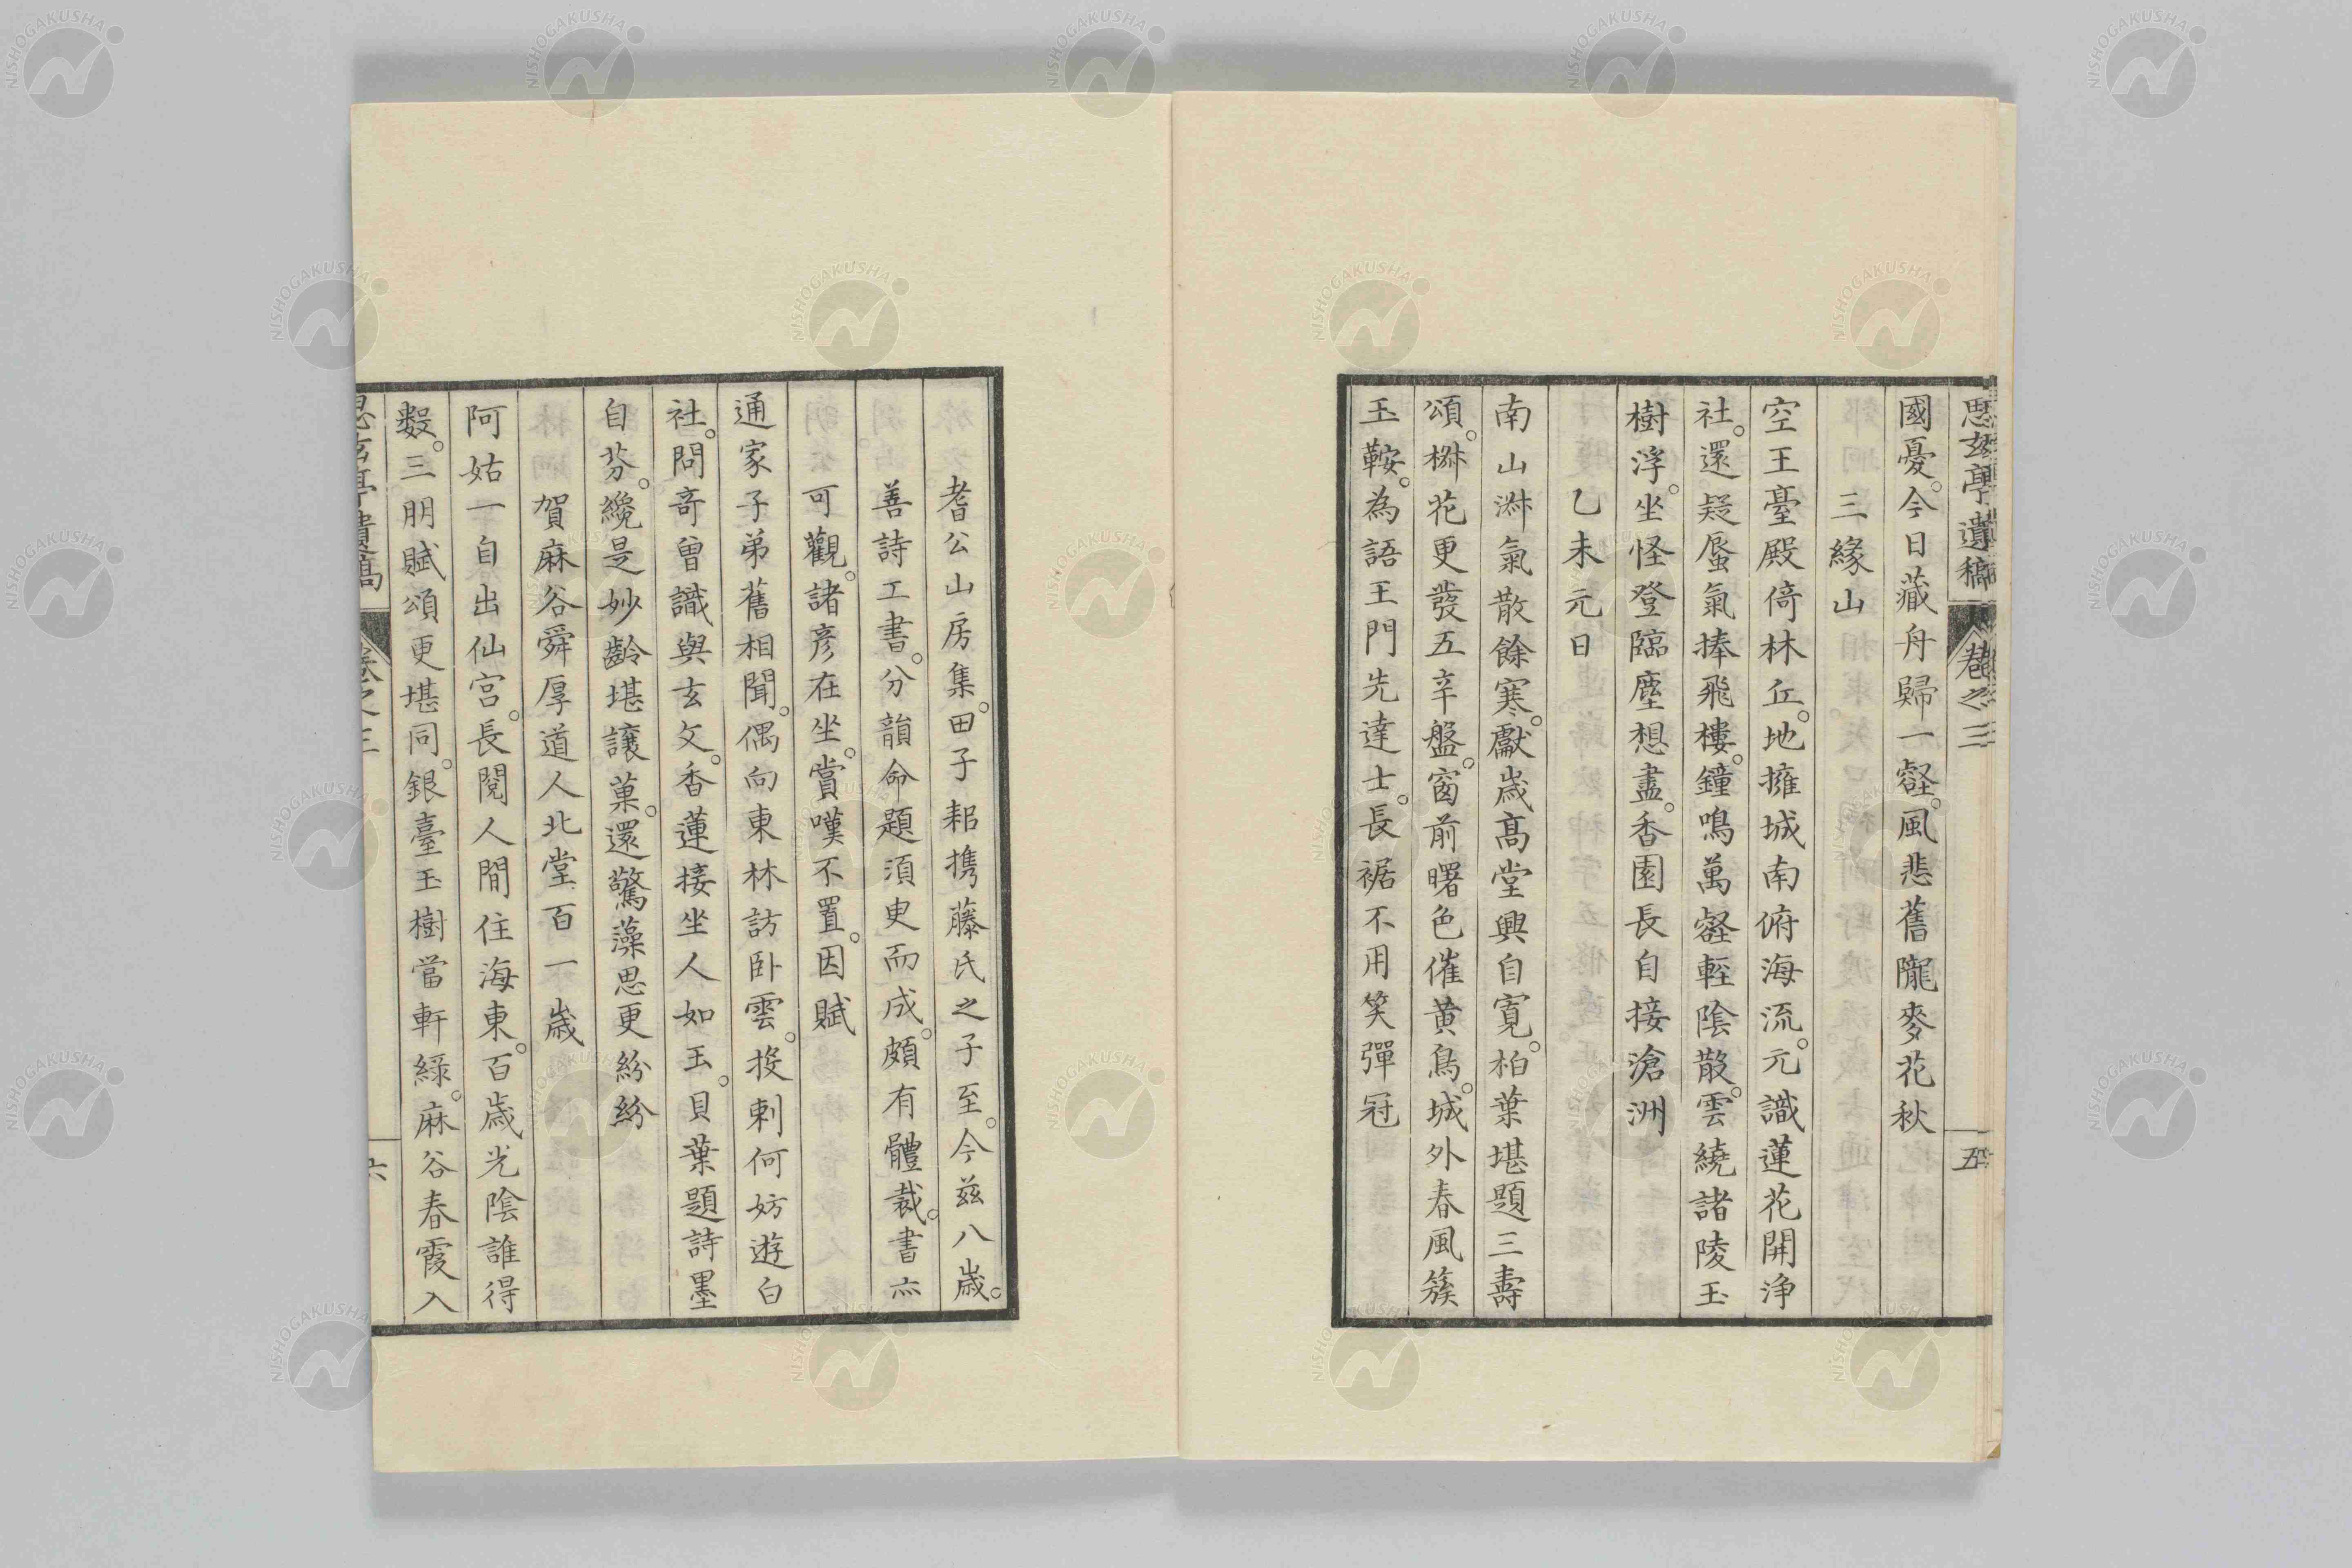 思玄亭遺稿 卷之三 五
國憂。今日藏舟歸一壑。風悲舊隴麥花秋
三緣山
空王臺殿倚林丘。地擁城南俯海流。元識蓮花開淨
社。還疑蜃氣捧飛樓。鐘鳴萬壑輕陰散。雲繞諸陵玉
樹浮。坐怪登臨塵想盡。香園長自接滄洲
乙未元日
南山淋氣散餘寒。獻歲高堂興自寬。柏葉堪題三壽
頌。椒花更發五辛盤。窗前曙色催黃鳥。城外春風簇
玉鞍。為語王門先達士。長裾不用笑彈冠
耆公山房集。田子耜携藤氏之子至。今茲八歲。
善詩工書。分韻命題須臾而成。頗有體裁。書亦
可觀。諸彥在坐。賞嘆不置。因賦
通家子弟舊相聞。偶向東林訪臥雲。投刺何妨遊白
社。問奇曾識與玄文。香蓮接坐人如玉。貝葉題詩墨
自芬。纔是妙齡堪讓菓。還驚藻思更紛紛
賀麻谷舜厚道人北堂百一歲
阿姑一自出仙宮。長閱人間住海東。百歲光陰誰得
數。三朋賦頌更堪同。銀臺玉樹當軒綠。麻谷春霞入
思玄亭遺稿 卷之三 六
NISHOGAKUSHA